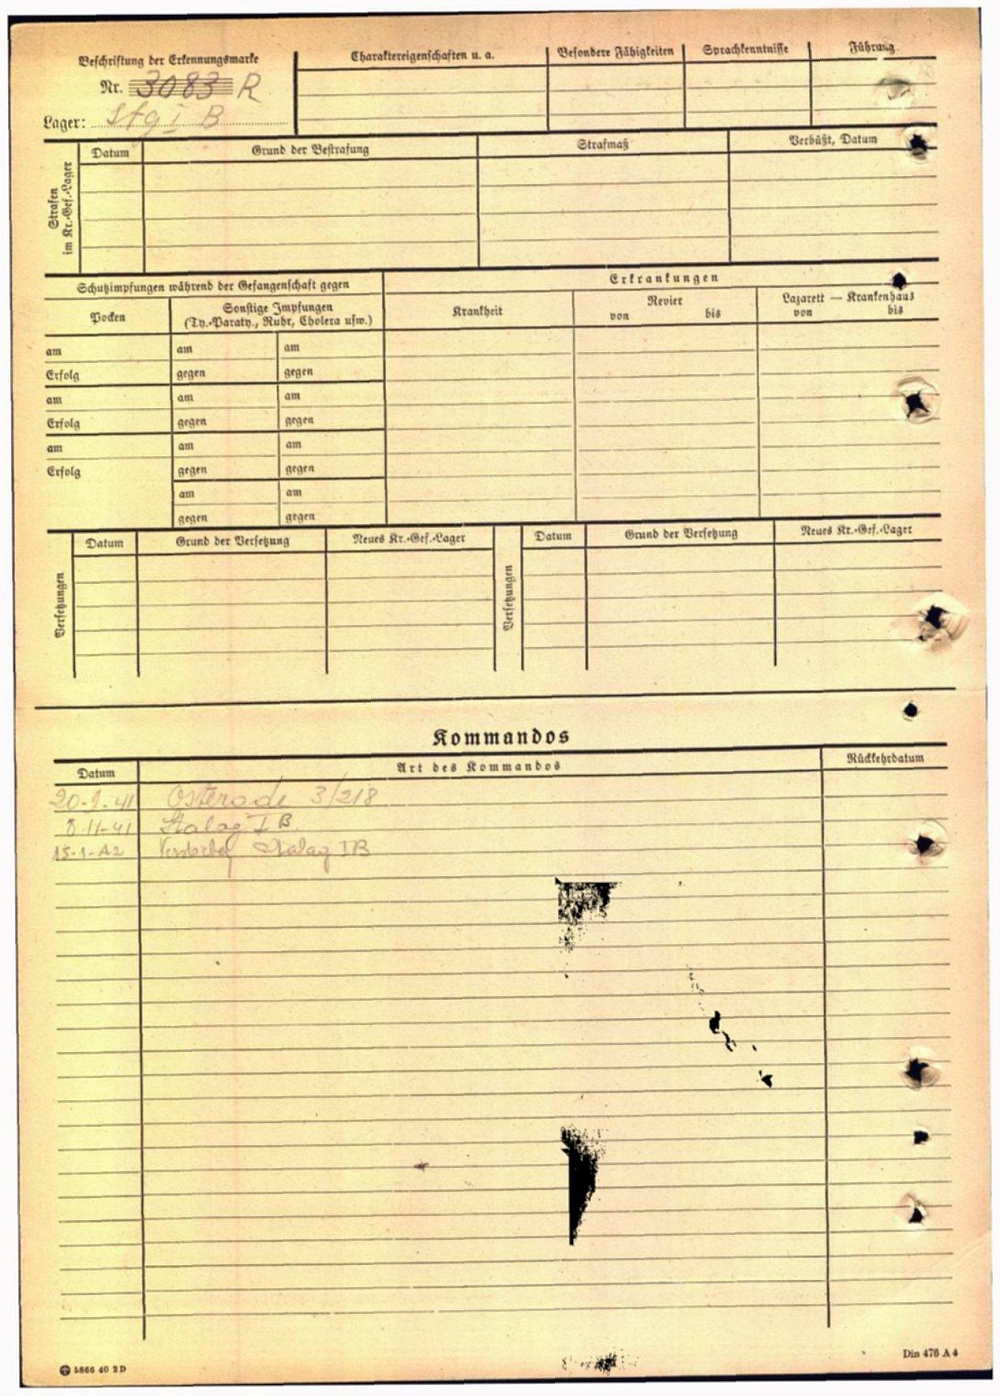 Beschriftung der Erkennungsmarke
Nr. 3083 R
Lager: Stg I B
Charaktereigenschaften u. a.
Besondere Fähigkeiten
Sprachkenntnisse
Führung
Strafen im Kr.-Gef.-Lager
Datum
Grund der Bestrafung
Strafmaß
Verbüßt, Datum
Schutzimpfungen während der Gefangenschaft gegen
Erkrankungen
Pocken
Sonstige Impfungen
(Ty.-Paraty., Ruhr, Cholera usw.)
Krankheit
Revier
von bis
Lazarett — Krankenhaus
von bis
am am am
Erfolg gegen gegen
am am am
Erfolg gegen gegen
am am am
Erfolg gegen gegen
am am
gegen gegen
Versetzungen
Datum
Grund der Versetzung
Neues Kr.-Gef.-Lager
Versetzungen
Datum
Grund der Versetzung
Neues Kr.-Gef.-Lager
Kommandos
Datum
Art des Kommandos
Rückkehrdatum
20-9-41 Osterode 3/218
8-11-41 Stalag I B
15-1-42 Stalag IB
5866 40 2D
Din 476 A4